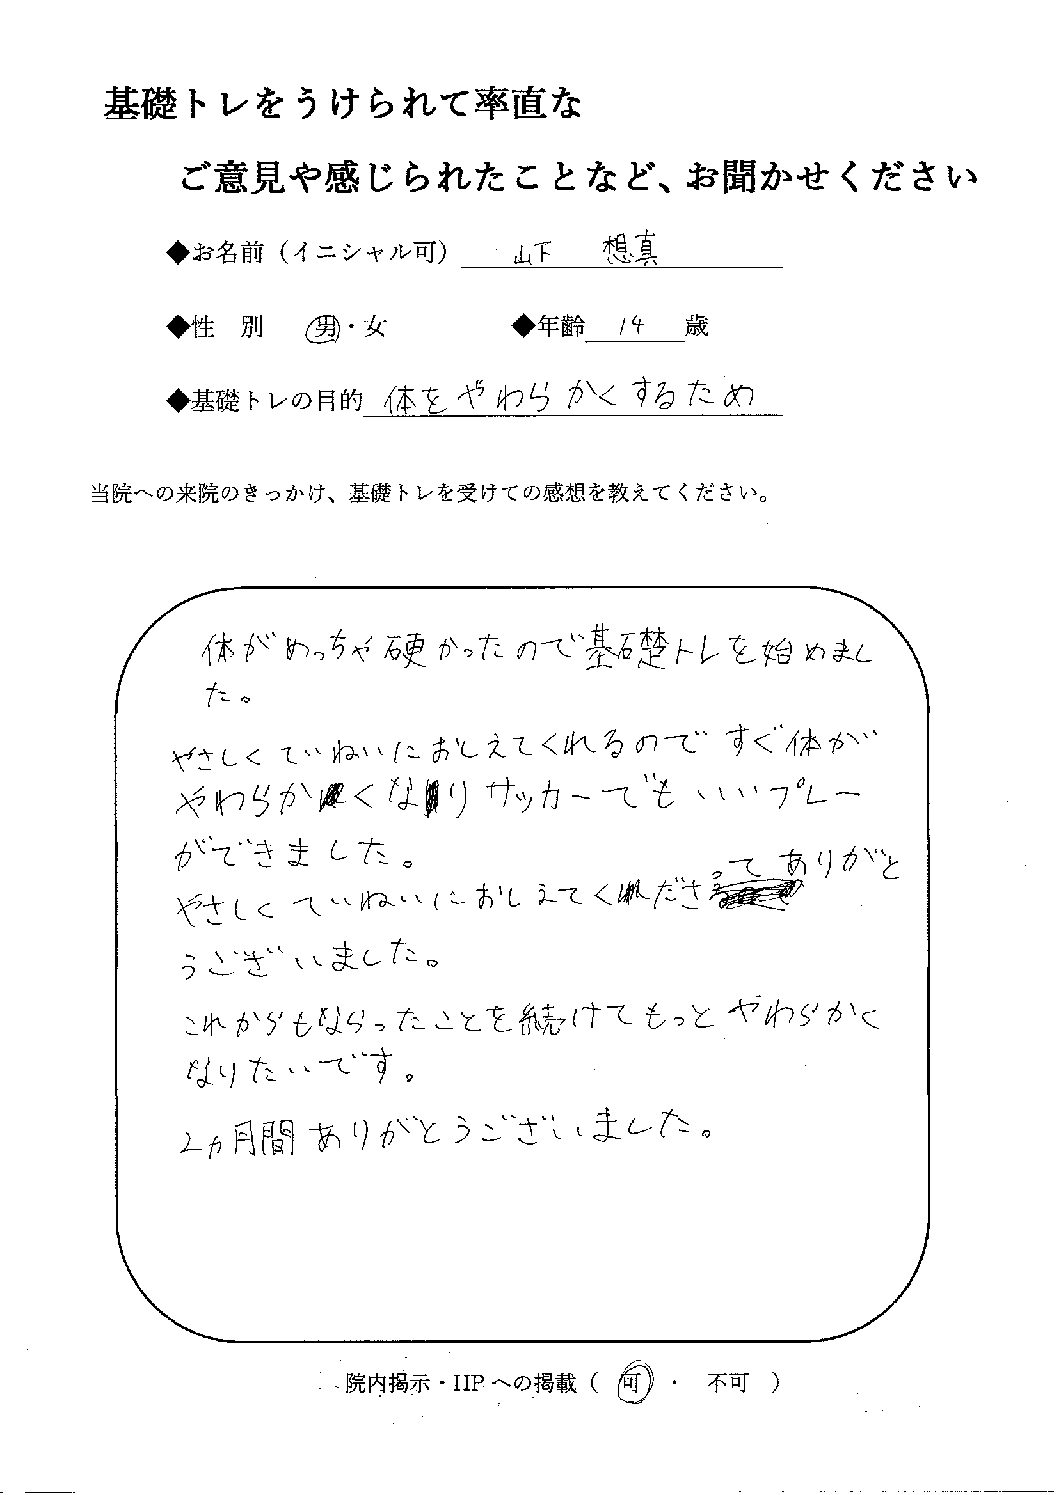 基礎トレをうけられて率直な
ご意見や感じられたことなど、お聞かせください
◆お名前（イニシャル可） 山下 想真
◆性 別 男・女 ◆年齢 14 歳
◆基礎トレの目的 体をやわらかくするため
当院への来院のきっかけ、基礎トレを受けての感想を教えてください。
体がめっちゃ硬かったので基礎トレを始めまし
た。
やさしくていねいにおしえてくれるのですぐ体が
やわらかくなりサッカーでもいいプレー
ができました。
やさしくていねいにおしえてくださってありがと
うございました。
これからもならったことを続けてもっとやわらかく
なりたいです。
2ヵ月間ありがとうございました。
院内掲示・HPへの掲載（ 可 ・ 不可 ）